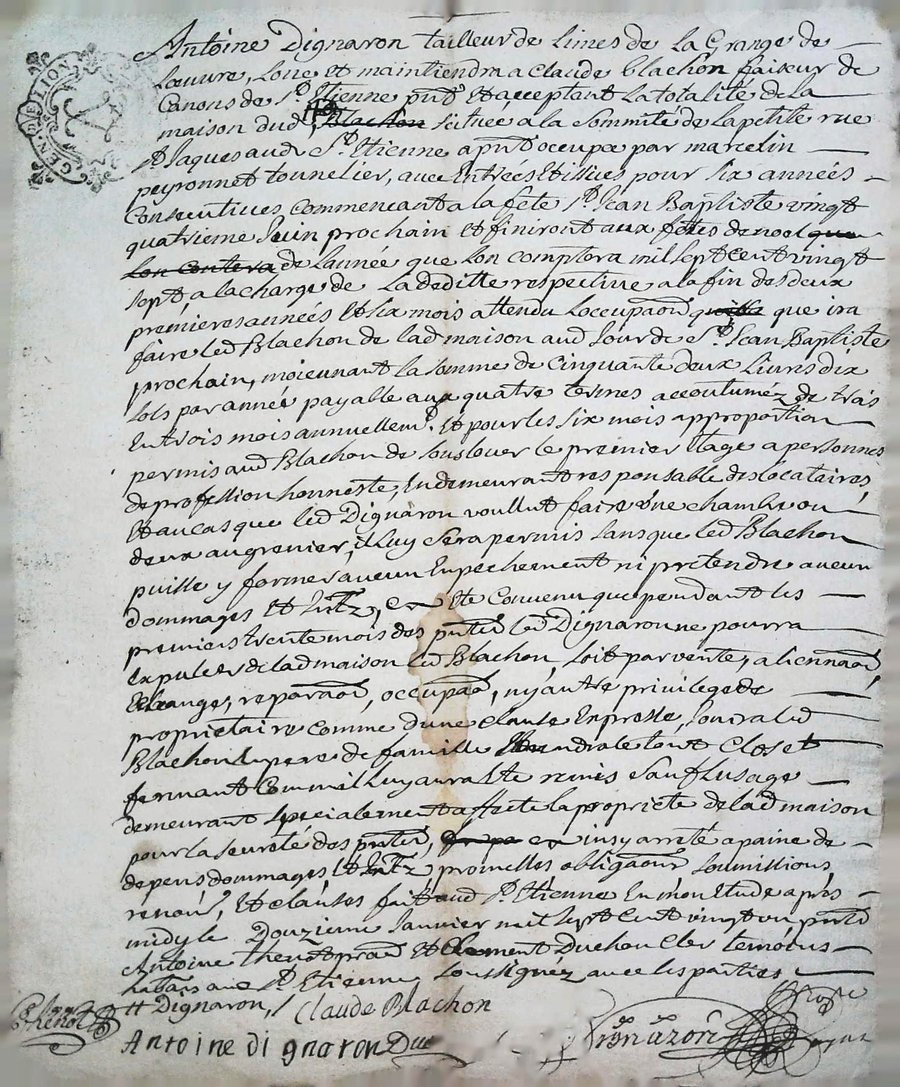 GEN DE LION
Antoine Dignaron tailleur de limes de La Grange de
Loeuvre, Loue et maintiendra a Claude blachon faiseur de
Canons de St. Etienne pnt et acceptant La totalité de la
maison dud Blachon scituée a la sommité de la petite rue
St Jaques aud St. Etienne a pnt occupé par marcelin
peyronnet tounelier, avec Entrées et issues pour six années
Consecutives commencant a la fête St. Jean Baptiste vingt
quatrieme Juin prochain et finiront aux fêtes de noel que
Lon contera de Lannée que Lon comptera mil sept Cent vingt
sept, a la charge de La deditte respective a la fin des deux
premieres années et six mois attendu Loccupaon que ira
faire led Blachon de lad maison aud Jour de St. Jean Baptiste
prochain, moienant la somme de Cinquante deux Livres dix
sols par année payable aux quatre termes accoutuméz de trois
En trois mois annuellemt. et pour les six mois appropotion
permis aud Blachon de souslouer le premier Etage a personnes
de profession honneste, En demeurant responsable des locataires,
et au cas que led Dignaron voullut faire Une chambre ou
deux au grenier, il Luy sera permis sans que led Blachon
puisse y former aucun Enpechement ni pretendre aucun
dommages et Intz, Ete Convenu que pendant les
premiers trente mois des pntes led Dignaron ne pourra
Expulser de lad maison led Blachon, soit par vente, alienaaon
Echange, reparaon, occupaon, ny autre privilege de
proprietaire comme dune clause Expresse, Joüira led
Blachon En pere de famille Et rendra le tout Clos et
fermant Comme il Luy aura Ete remis sauf Lusage
demeurant specialement affecté la proprieté de lad maison
pour la seureté des pntes, insy arreté a paine de
depens dommages, et Intz promesses obligaons soumissions,
renons, et clauses fait aud St. Etienne En mon Etude après
midy le Douzieme Janvier mil sept Cent vingt un pnts
Antoine thenot prat et Clement Duchon Clerc temoins
habans aud St Etienne soussignéz avec les parties
Dignaron, Claude Blachon
Thenot
Antoine dignaron